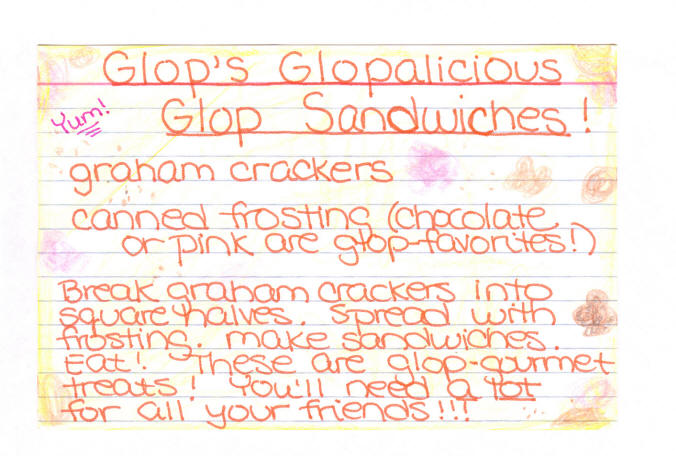 Glop's Glopalicious
Yum!
Glop Sandwiches!
graham crackers
canned frosting (chocolate
or pink are glop-favorites!)
Break graham crackers into
square halves. Spread with
frosting. make sandwiches.
Eat! These are glop-gourmet
treats! You'll need a lot
for all your friends!!!